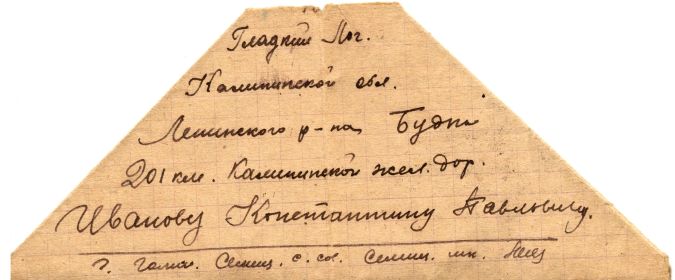 Гладкий Лог.
Калининской обл.
Ленинского р-на Будка
201 км. Калининской жел. дор.
Иванову Константину Павловичу.
г. Галич.